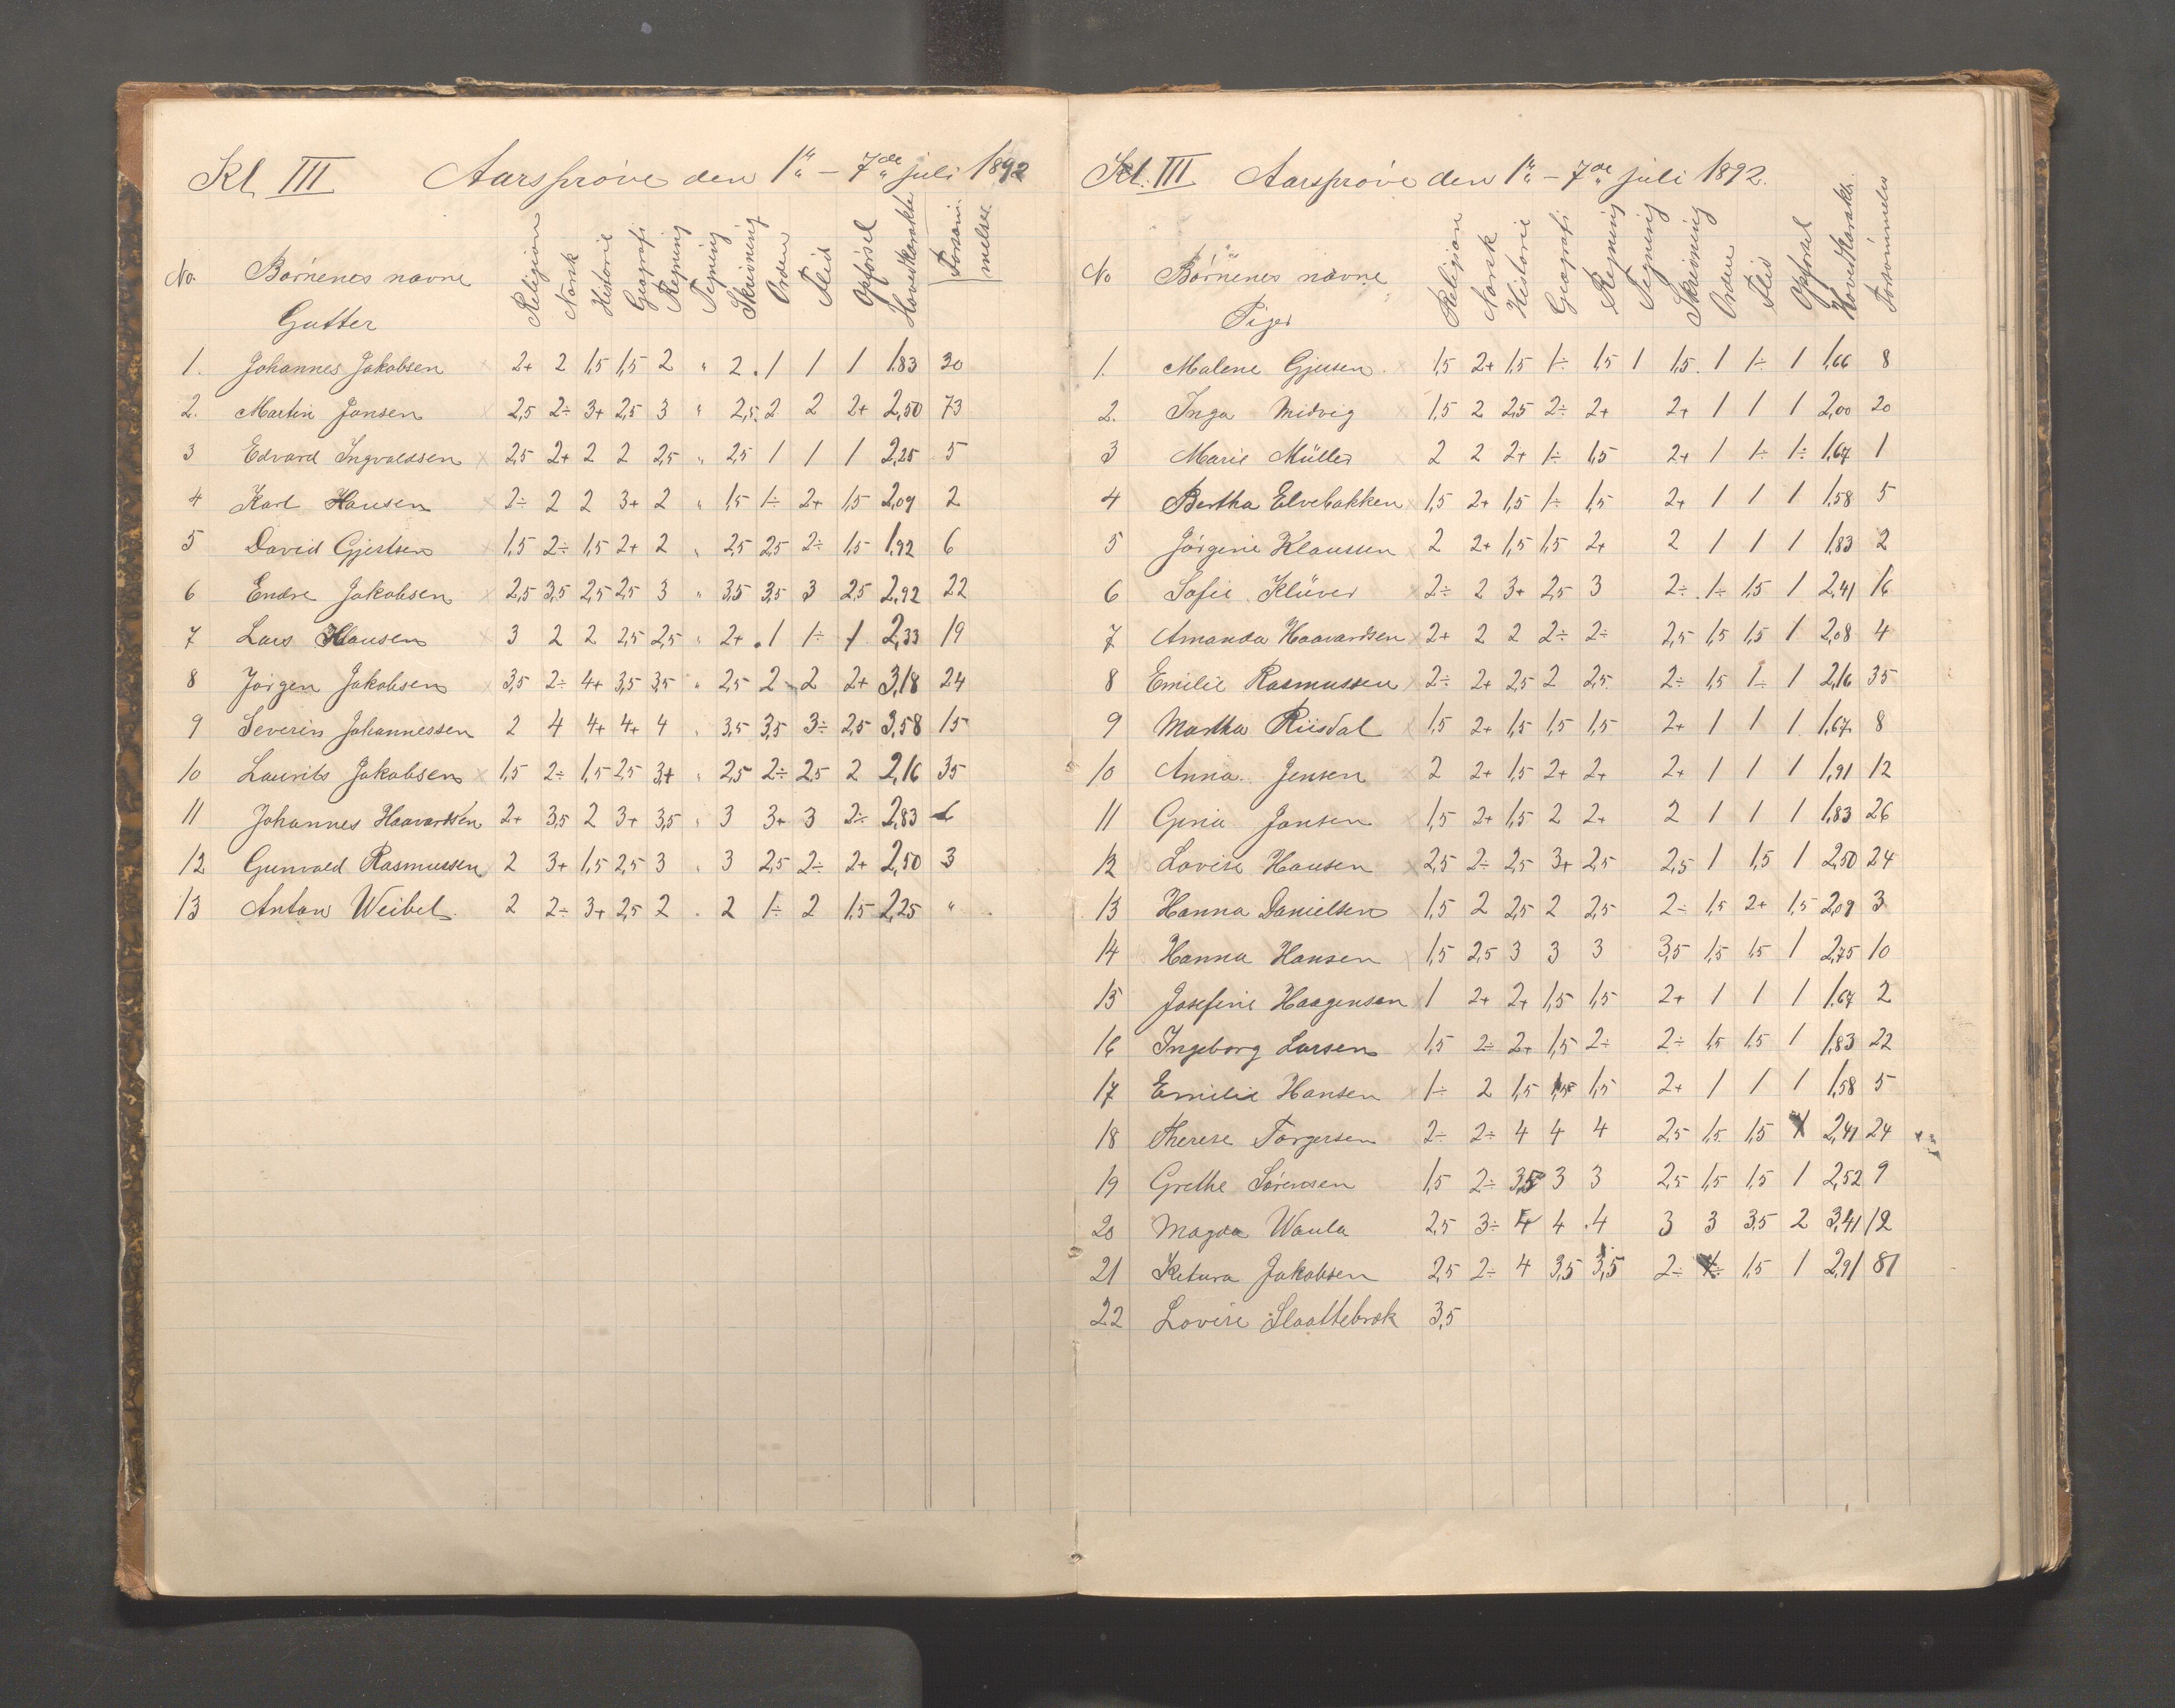 Kl. III Aarsprøve den 1ste – 7de juli 1892
No. Børnenes navne Religion Norsk Historie Geografi Regning Tegning Skrivning Orden Flid Opførsel Hovedkarakter Forsømmelser
Gutter
1. Johannes Jakobsen 2+ 2 1,5 1,5 2 " 2 1 1 1 1,83 30
2. Martin Jansen 2,5 2÷ 3+ 2,5 3 " 2,5 2 2 2+ 2,50 73
3 Edvard Ingvaldsen 2,5 2+ 2 2 2,5 " 2,5 1 1 1 2,25 5
4 Karl Hansen 2÷ 2 2 3+ 2 " 1,5 1÷ 2+ 1,5 2,09 2
5 David Gjertsen 1,5 2÷ 1,5 2+ 2 " 2,5 2,5 2÷ 1,5 1,92 6
6 Endre Jakobsen 2,5 3,5 2,5 2,5 3 " 3,5 3,5 3 2,5 2,92 22
7 Lars Hansen 3 2 2 2,5 2,5 " 2+ 1 1÷ 1 2,33 19
8 Jørgen Jakobsen 3,5 2÷ 4+ 3,5 3,5 " 2,5 2 2 2+ 3,18 24
9 Severin Johannessen 2 4 4+ 4+ 4 " 3,5 3,5 3÷ 2,5 3,58 15
10 Laurits Jakobsen 1,5 2÷ 1,5 2,5 3+ " 2,5 2÷ 2,5 2 2,16 35
11 Johannes Haavardsen 2+ 3,5 2 3+ 3,5 " 3 3+ 3 2÷ 2,83 6
12 Gunvald Rasmussen 2 3+ 1,5 2,5 3 " 3 2,5 2÷ 2+ 2,50 3
13 Anton Weibel 2 2÷ 3+ 2,5 2 " 2 1÷ 2 1,5 2,25 "
Kl. III Aarsprøve den 1ste – 7de juli 1892.
No Børnenes navne Religion Norsk Historie Geografi Regning Tegning Skrivning Orden Flid Opførsel Hovedkarakter Forsømmelser
Piger
1. Malene Gjersen 1,5 2+ 1,5 1÷ 1,5 1 1,5 1 1÷ 1 1,66 8
2. Inga Midvig 1,5 2 2,5 2÷ 2+ 2+ 1 1 1 2,00 20
3 Marie Müller 2 2 2+ 1÷ 1,5 2+ 1 1÷ 1÷ 1,67 1
4 Bertha Elvebakken 1,5 2+ 1,5 1÷ 1,5 2+ 1 1 1 1,58 5
5 Jørgine Klaussen 2 2+ 1,5 1,5 2+ 2 1 1 1 1,83 2
6 Sofie Klüver 2÷ 2 3+ 2,5 3 2÷ 1÷ 1,5 1 2,41 16
7 Amanda Haavardsen 2+ 2 2 2÷ 2÷ 2,5 1,5 1,5 1 2,08 4
8 Emilie Rasmussen 2÷ 2+ 2,5 2 2,5 2÷ 1,5 1÷ 1 2,16 35
9 Martha Riisdal 1,5 2+ 1,5 1,5 1,5 2+ 1 1 1 1,67 8
10 Anna Jensen 2 2+ 1,5 2+ 2+ 2+ 1 1 1 1,91 12
11 Gina Jansen 1,5 2+ 1,5 2 2+ 2 1 1 1 1,83 26
12 Lovise Hansen 2,5 2÷ 2,5 3+ 2,5 2,5 1 1,5 1 2,50 24
13 Hanna Danielsen 1,5 2 2,5 2 2,5 2÷ 1,5 2+ 1,5 2,09 3
14 Hanna Hansen 1,5 2,5 3 3 3 3,5 1,5 1,5 1 2,75 10
15 Josefine Haagensen 1 2+ 2+ 1,5 1,5 2+ 1 1 1 1,67 2
16 Ingeborg Larsen 1,5 2÷ 2+ 1,5 2÷ 2÷ 1,5 1,5 1 1,83 22
17 Emilie Hansen 1÷ 2 1,5 1,5 1,5 2+ 1 1 1 1,58 5
18 Therese Torgersen 2÷ 2÷ 4 4 4 2,5 1,5 1,5 1 2,41 24
19 Grethe Sørensen 1,5 2÷ 3,5 3 3 2,5 1,5 1,5 1 2,52 9
20 Magda Waula 2,5 3÷ 4 4 4 3 3 3,5 2 3,41 12
21 Ketura Jakobsen 2,5 2÷ 4 3,5 3,5 2÷ 1÷ 1,5 1 2,91 81
22 Lovise Slaattebrek 3,5